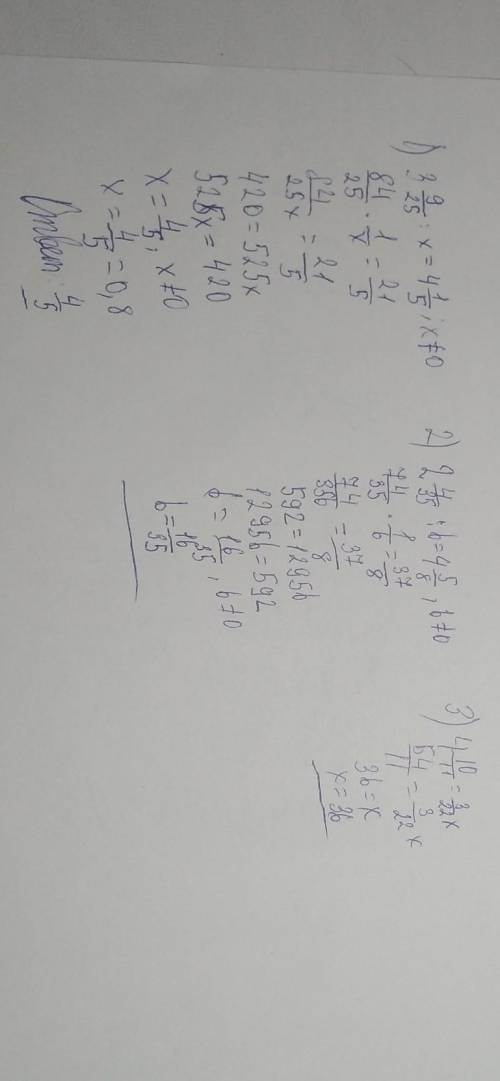 1) 3 9/25 : x = 4 1/5; x ≠ 0
84/25 · 1/x = 21/5
84/25x = 21/5
420 = 525x
525x = 420
x = 4/5; x ≠ 0
x = 4/5 = 0,8
Ответ: 4/5
2) 2 4/35 : b = 4 5/8, b ≠ 0
74/35 · 1/b = 37/8
74/35b = 37/8
592 = 1295b
1295b = 592
b = 16/35, b ≠ 0
b = 16/35
3) 4 10/11 = 3/22 x
54/11 = 3/22 x
36 = x
x = 36